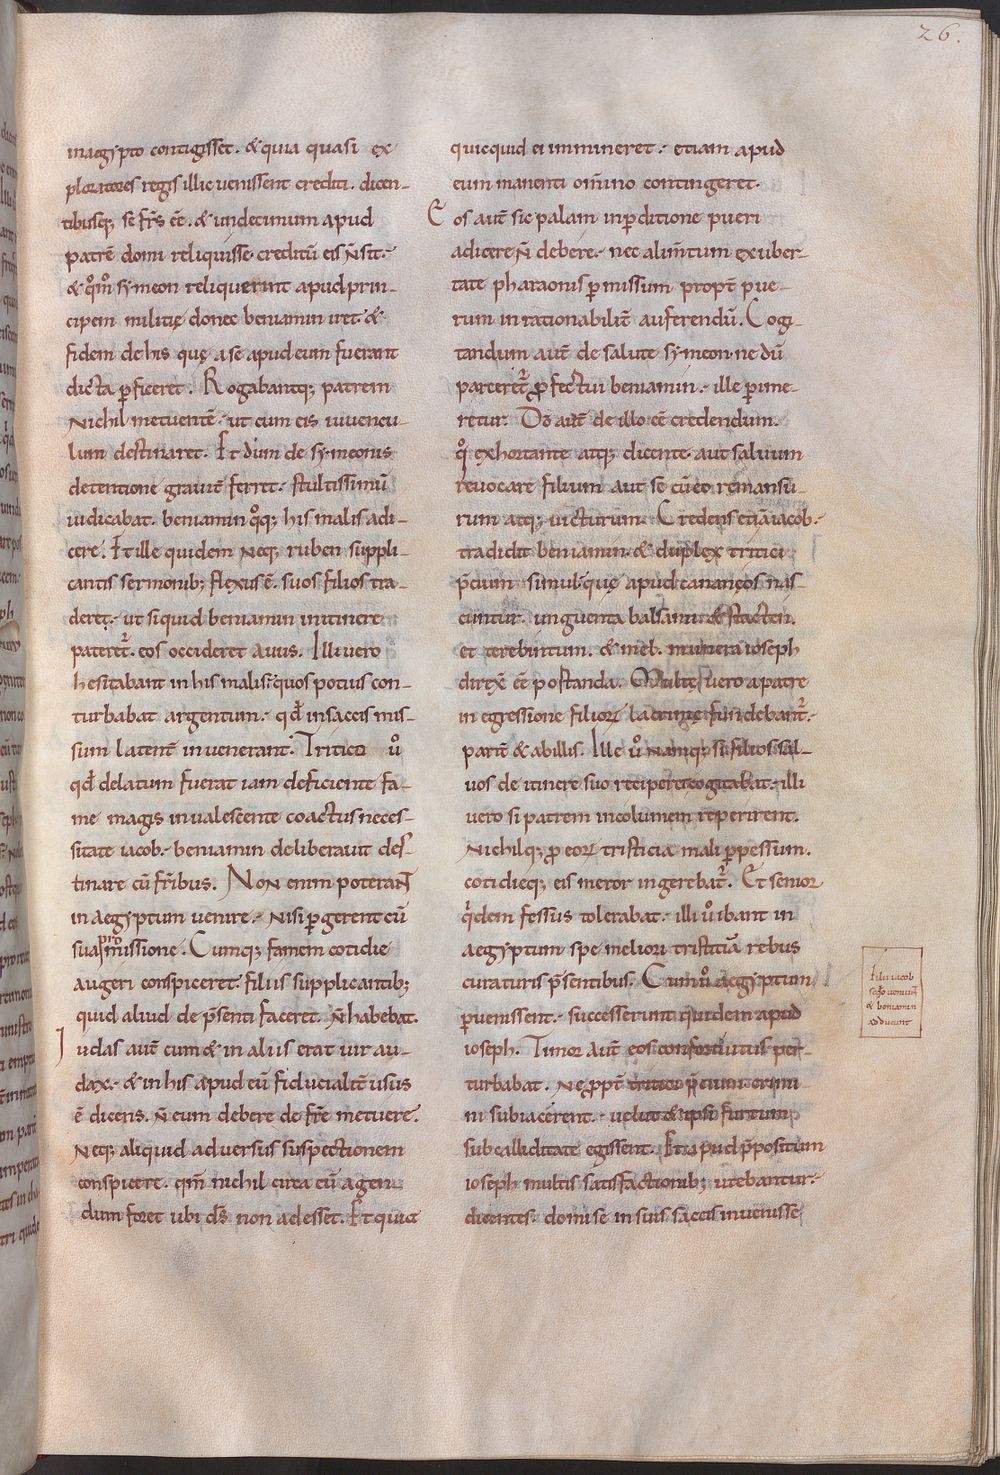 26.
inaegypto contigisset. & quia quasi ex
ploratores regis illic venissent crediti. dicen-
tibusq; se fr̄s eē. & undecimum apud
patrē domi reliquisse. creditū eis n̄ sit.
& qm̄ symeon reliquerunt apud prin-
cipem militię donec beniamin iret. &
fidem de his quę a se apud eum fuerant
dicta p̄ficeret. Rogabantq; patrem
Nichil metuentē. ut cum eis iuvencu-
lum destinaret. Et dum de symeonis
detentione gravit̄ ferret. stultissimū
iudicabat. beniamin qq; his malis adi-
cere. Et ille quidem neq; ruben suppli-
cantis sermonib; flexus ē. suos filios tra-
deret. ut siquid beniamin initinere
pateret᷑. eos occideret avus. Illi vero
hesitabant in his malis. quos potius con-
turbabat argentum. qđ insaccis mis-
sum latent̄ invenerant. Tritico ů
qđ delatum fuerat iam deficiente fa-
me magis invalescente coactus neces-
sitate iacob. beniamin deliberavit des-
tinare cū fr̄ibus. Non enim poterant
in aegyptum venire. Nisi p̄gerent cū
sua pmissione. Cumq; famem cotidie
augeri conspiceret. filiis supplicantib;
quid aliud de p̄senti faceret. n̄ habebat.
Iudas autē cum & in aliis erat vir au-
dax. & in his apud eū fiducialit̄ usus
ē dicens. n̄ eum debere de fr̄e metuere.
Neq; aliquid adversus suspectionem
conspicere. qm̄ nichil circa eū agen
dum foret ubi d̄s non adesset. Et quia
quicquid ei immineret. etiam apud
eum manenti om̄ino contingeret.
Eos autē sic palam inp̄ditione pueri
adicere n̄ debere. nec alim̄tum exuber-
tate pharaonis p̄missum propt̄ pue-
rum inrationabilit̄ auferendū. Cogi-
tandum autē de salute symeon. ne dū
parceret᷑ p̄fectui beniamin. ille p̄ime-
retur. Dō autē de illo eē credendum.
q̊ exhortante atq; dicente. aut salvum
revocare filium aut se cū eo remansu-
rum atq; victurum. Credens etiā iacob.
tradidit beniamin. & duplex tritici
p̄cium simul. quę apud cananęos nas-
cuntur. unguenta balsami. & stacten.
et terebintum. & mel. munera ioseph
direx̄ eē postanda. Multę vero a patre
in egressione filiorꝝ lacrimę fundebant᷑.
parit̄ & ab illis. Ille ů namq; si filios sal-
vos de itinere suo recipere cogitabat. illi
vero si patrem incolumem reperirent.
Nichilq; p̄ eorꝝ tristicia mali p̄pessum.
cotidieq; eis meror ingerebat᷑. Et senior
q̇dem fessus tolerabat. illi ů ibant in
aegyptum spe meliori tristiciā rebus
curaturis p̄sentibus. Cum ů aegyptum
p̄venissent. successerunt quidem apud
ioseph. Timor autē eos confortivius per-
turbabat. Ne p̄pt̄ tritici p̄cium crimi
ni subiacerent. velut & ipsi furtum
sub calliditate egissent. Et apud p̄positum
ioseph multis satisfactionib; utebantur.
dicentes. domi se in suis saccis invenisse
filii iacob
sc̄do veniunt
& beniamin
adducunt